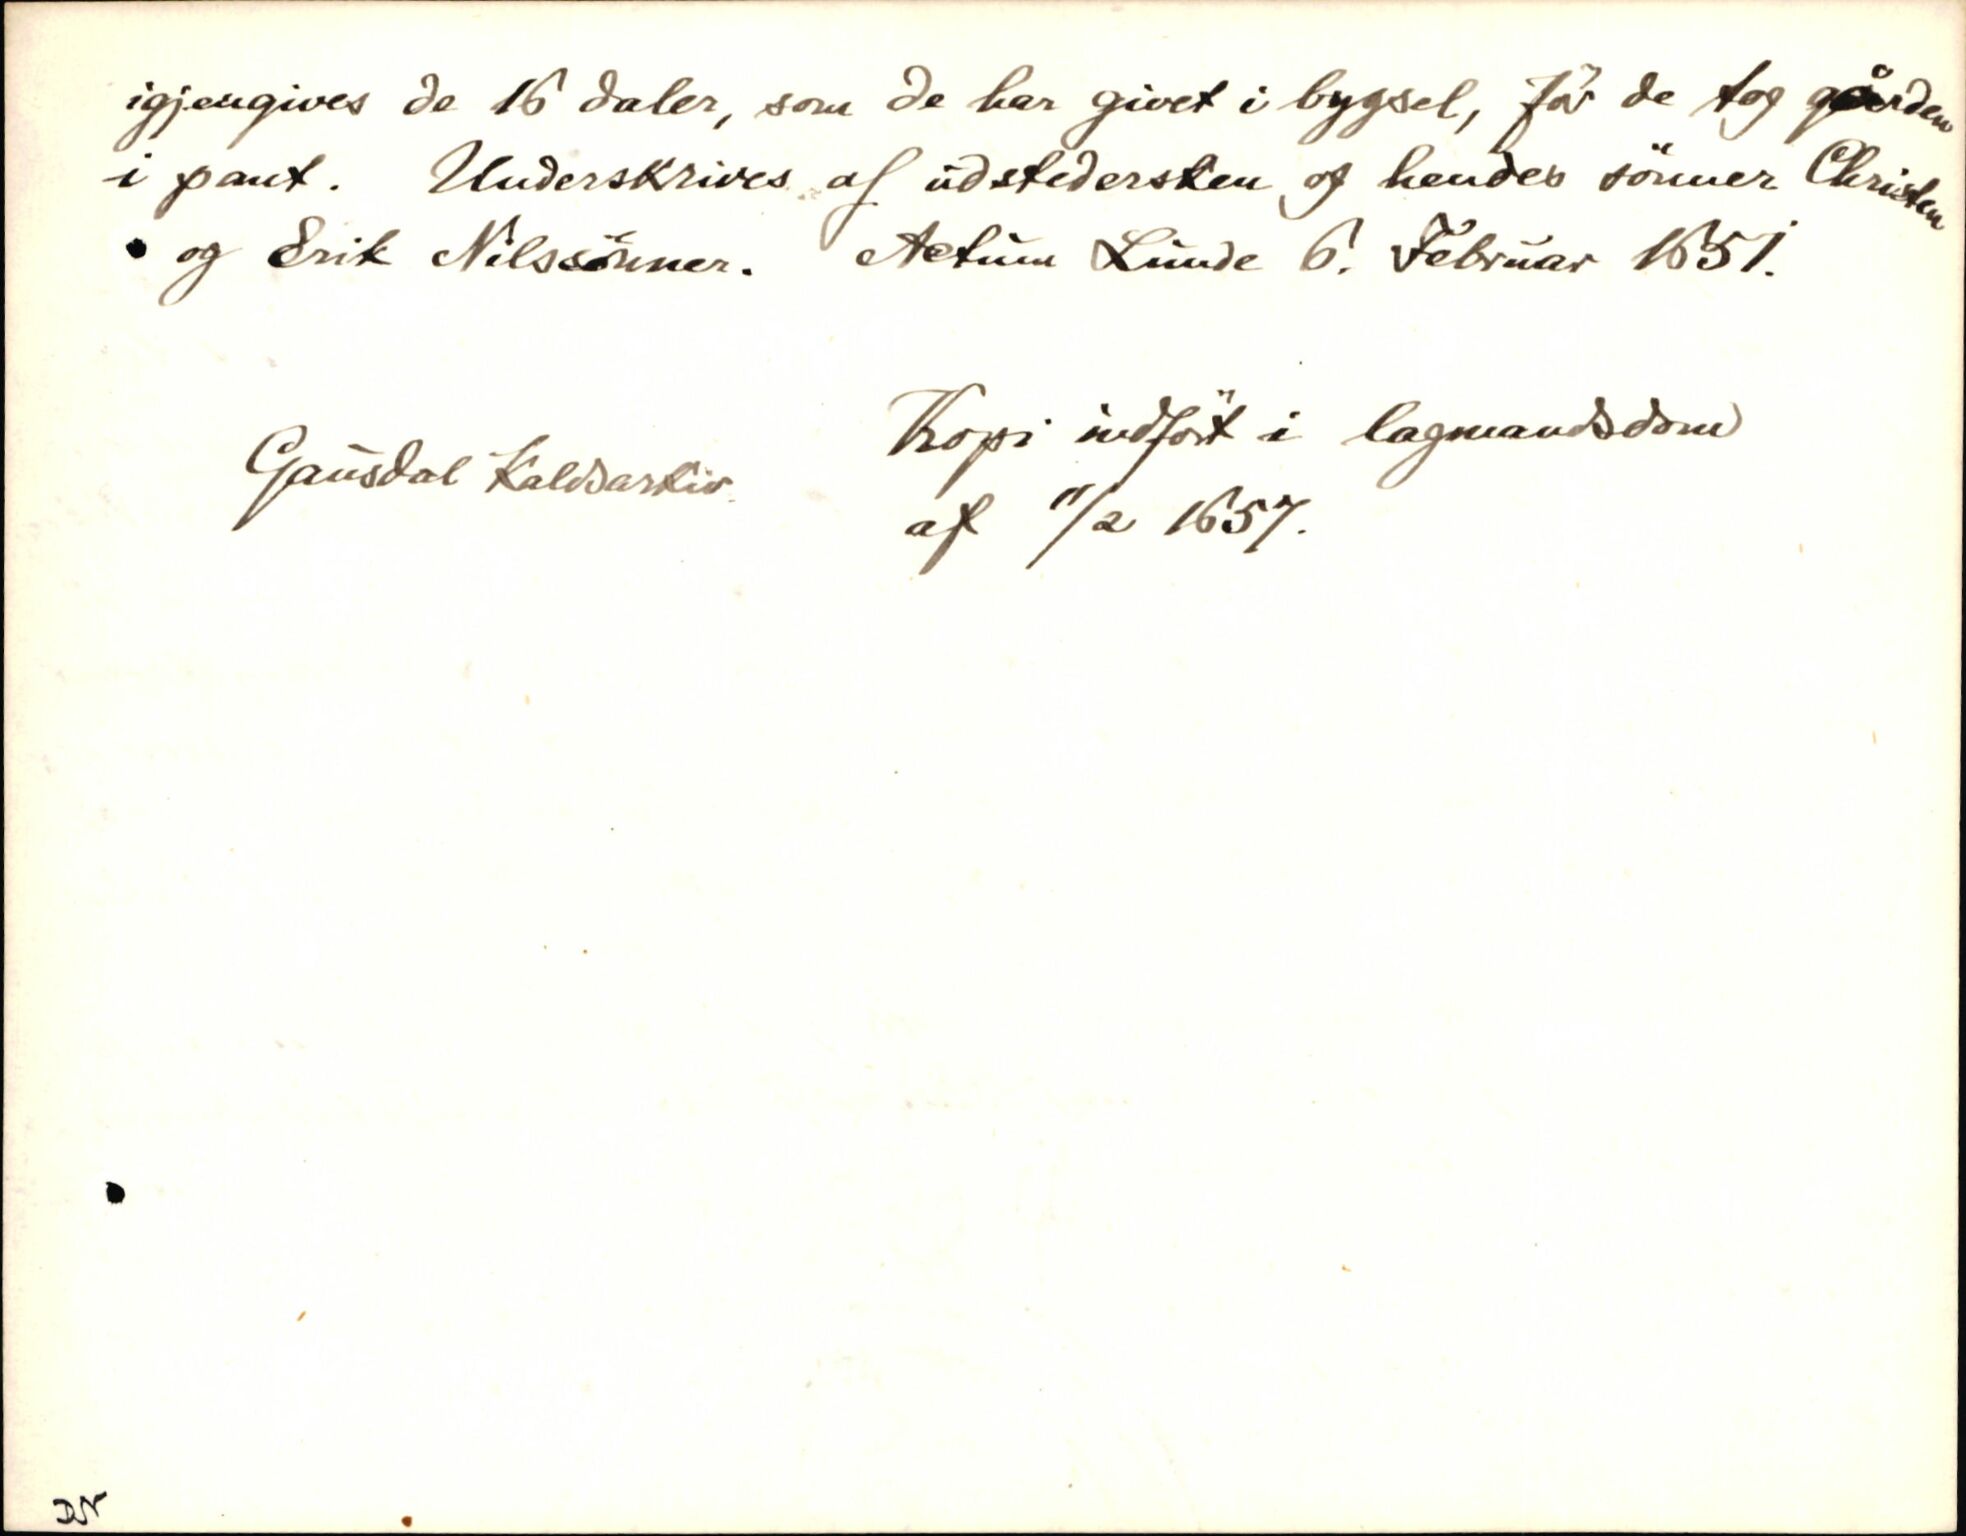 igjengives de 16 daler, som de har givet i bygsel, för de tog gården
i pant. Underskrives af udstedersken og hendes sönner Christen
og Erik Nilssönner. Actum Lunde 6. Februar 1651.
Kopi indfört i lagmandsdom
Gausdal Kaldsarkiv
af 11/2 1657.
DN